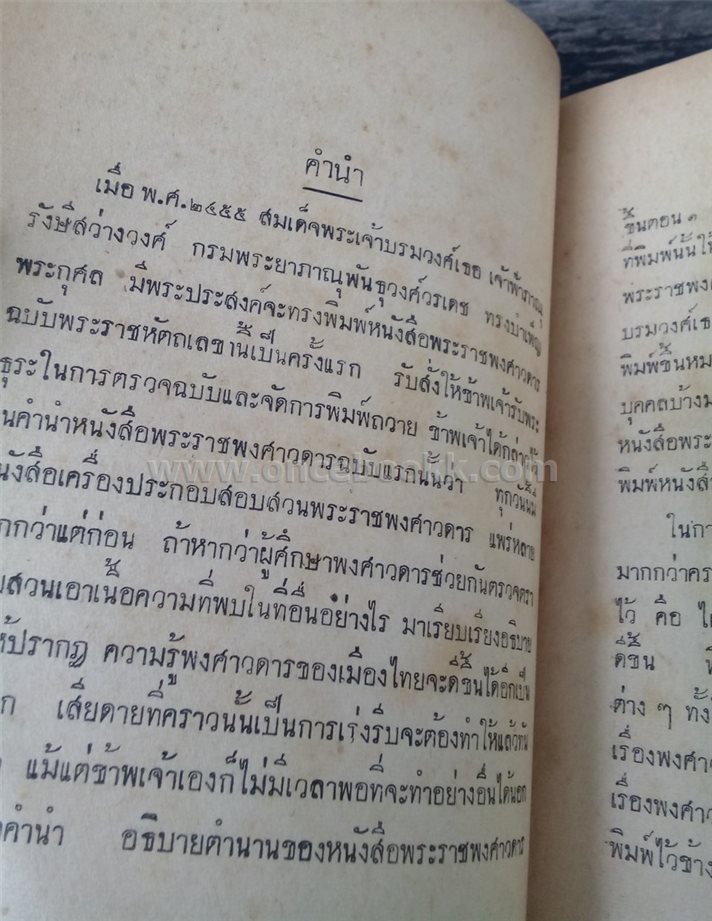 คำนำ
เมื่อ พ.ศ.๒๔๕๕ สมเด็จพระเจ้าบรมวงศ์เธอ เจ้าฟ้าภาณุ
รังษีสว่างวงศ์ กรมพระยาภาณุพันธุวงศ์วรเดช ทรงบำเพ็ญ
พระกุศล มีพระประสงค์จะทรงพิมพ์หนังสือพระราชพงศาวดาร
ฉบับพระราชหัตถเลขานี้เป็นครั้งแรก รับสั่งให้ข้าพเจ้ารับพระ
ธุระในการตรวจฉบับและจัดการพิมพ์ถวาย ข้าพเจ้าได้กล่าวไว้
นคำนำหนังสือพระราชพงศาวดารฉบับแรกนั้นว่า ทุกวันนี้มี
นังสือเครื่องประกอบสอบสวนพระราชพงศาวดาร แพร่หลาย
กกว่าแต่ก่อน ถ้าหากว่าผู้ศึกษาพงศาวดารช่วยกันตรวจตรา
บสวนเอาเนื้อความที่พบในที่อื่นอย่างไร มาเรียบเรียงอธิบาย
ห้ปรากฏ ความรู้พงศาวดารของเมืองไทยจะดีขึ้นได้อีกเป็น
ก เสียดายที่คราวนั้นเป็นการเร่งรีบจะต้องทำให้แล้วทัน
แม้แต่ข้าพเจ้าเองก็ไม่มีเวลาพอที่จะทำอย่างอื่นได้นอก
คำนำ อธิบายตำนานของหนังสือพระราชพงศาวดาร
ขึ้นตอน ๑
ที่พิมพ์นั้นให้
พระราชพงศ
บรมวงศ์เธ
พิมพ์ขึ้นหม
บุคคลบ้างม
หนังสือพระ
พิมพ์หนังสื
ในกา
มากกว่าคร
ไว้ คือ ได
ดีขึ้น ที
ต่าง ๆ ทั้ง
เรื่องพงศาว
เรื่องพงศาว
พิมพ์ไว้ข้าง
www.oncebookk.com